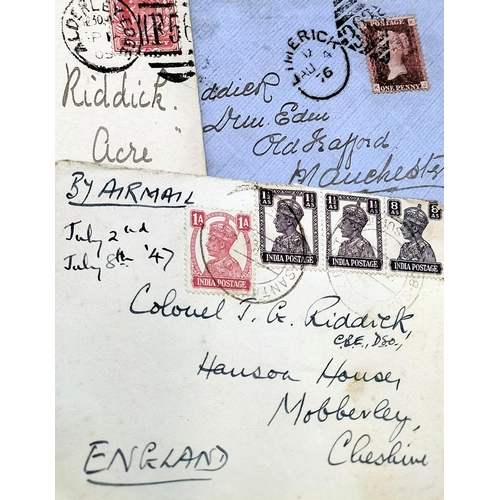 ALDERLEY EDGE
Riddick
Acre"
LIMERICK
AU
6
ONE PENNY
ddick
Old Trafford
Manchester
BY AIRMAIL
July 2nd
July 8th '47
1A
INDIA POSTAGE
1½ AS
1½ AS
INDIA POSTAGE
1½ AS
1½ AS
INDIA POSTAGE
8 AS
6 AS
INDIA POSTAGE
Colonel J. G. Riddick,
C.B.E., D.S.O.,
Hanson House,
Mobberley,
Cheshire
ENGLAND